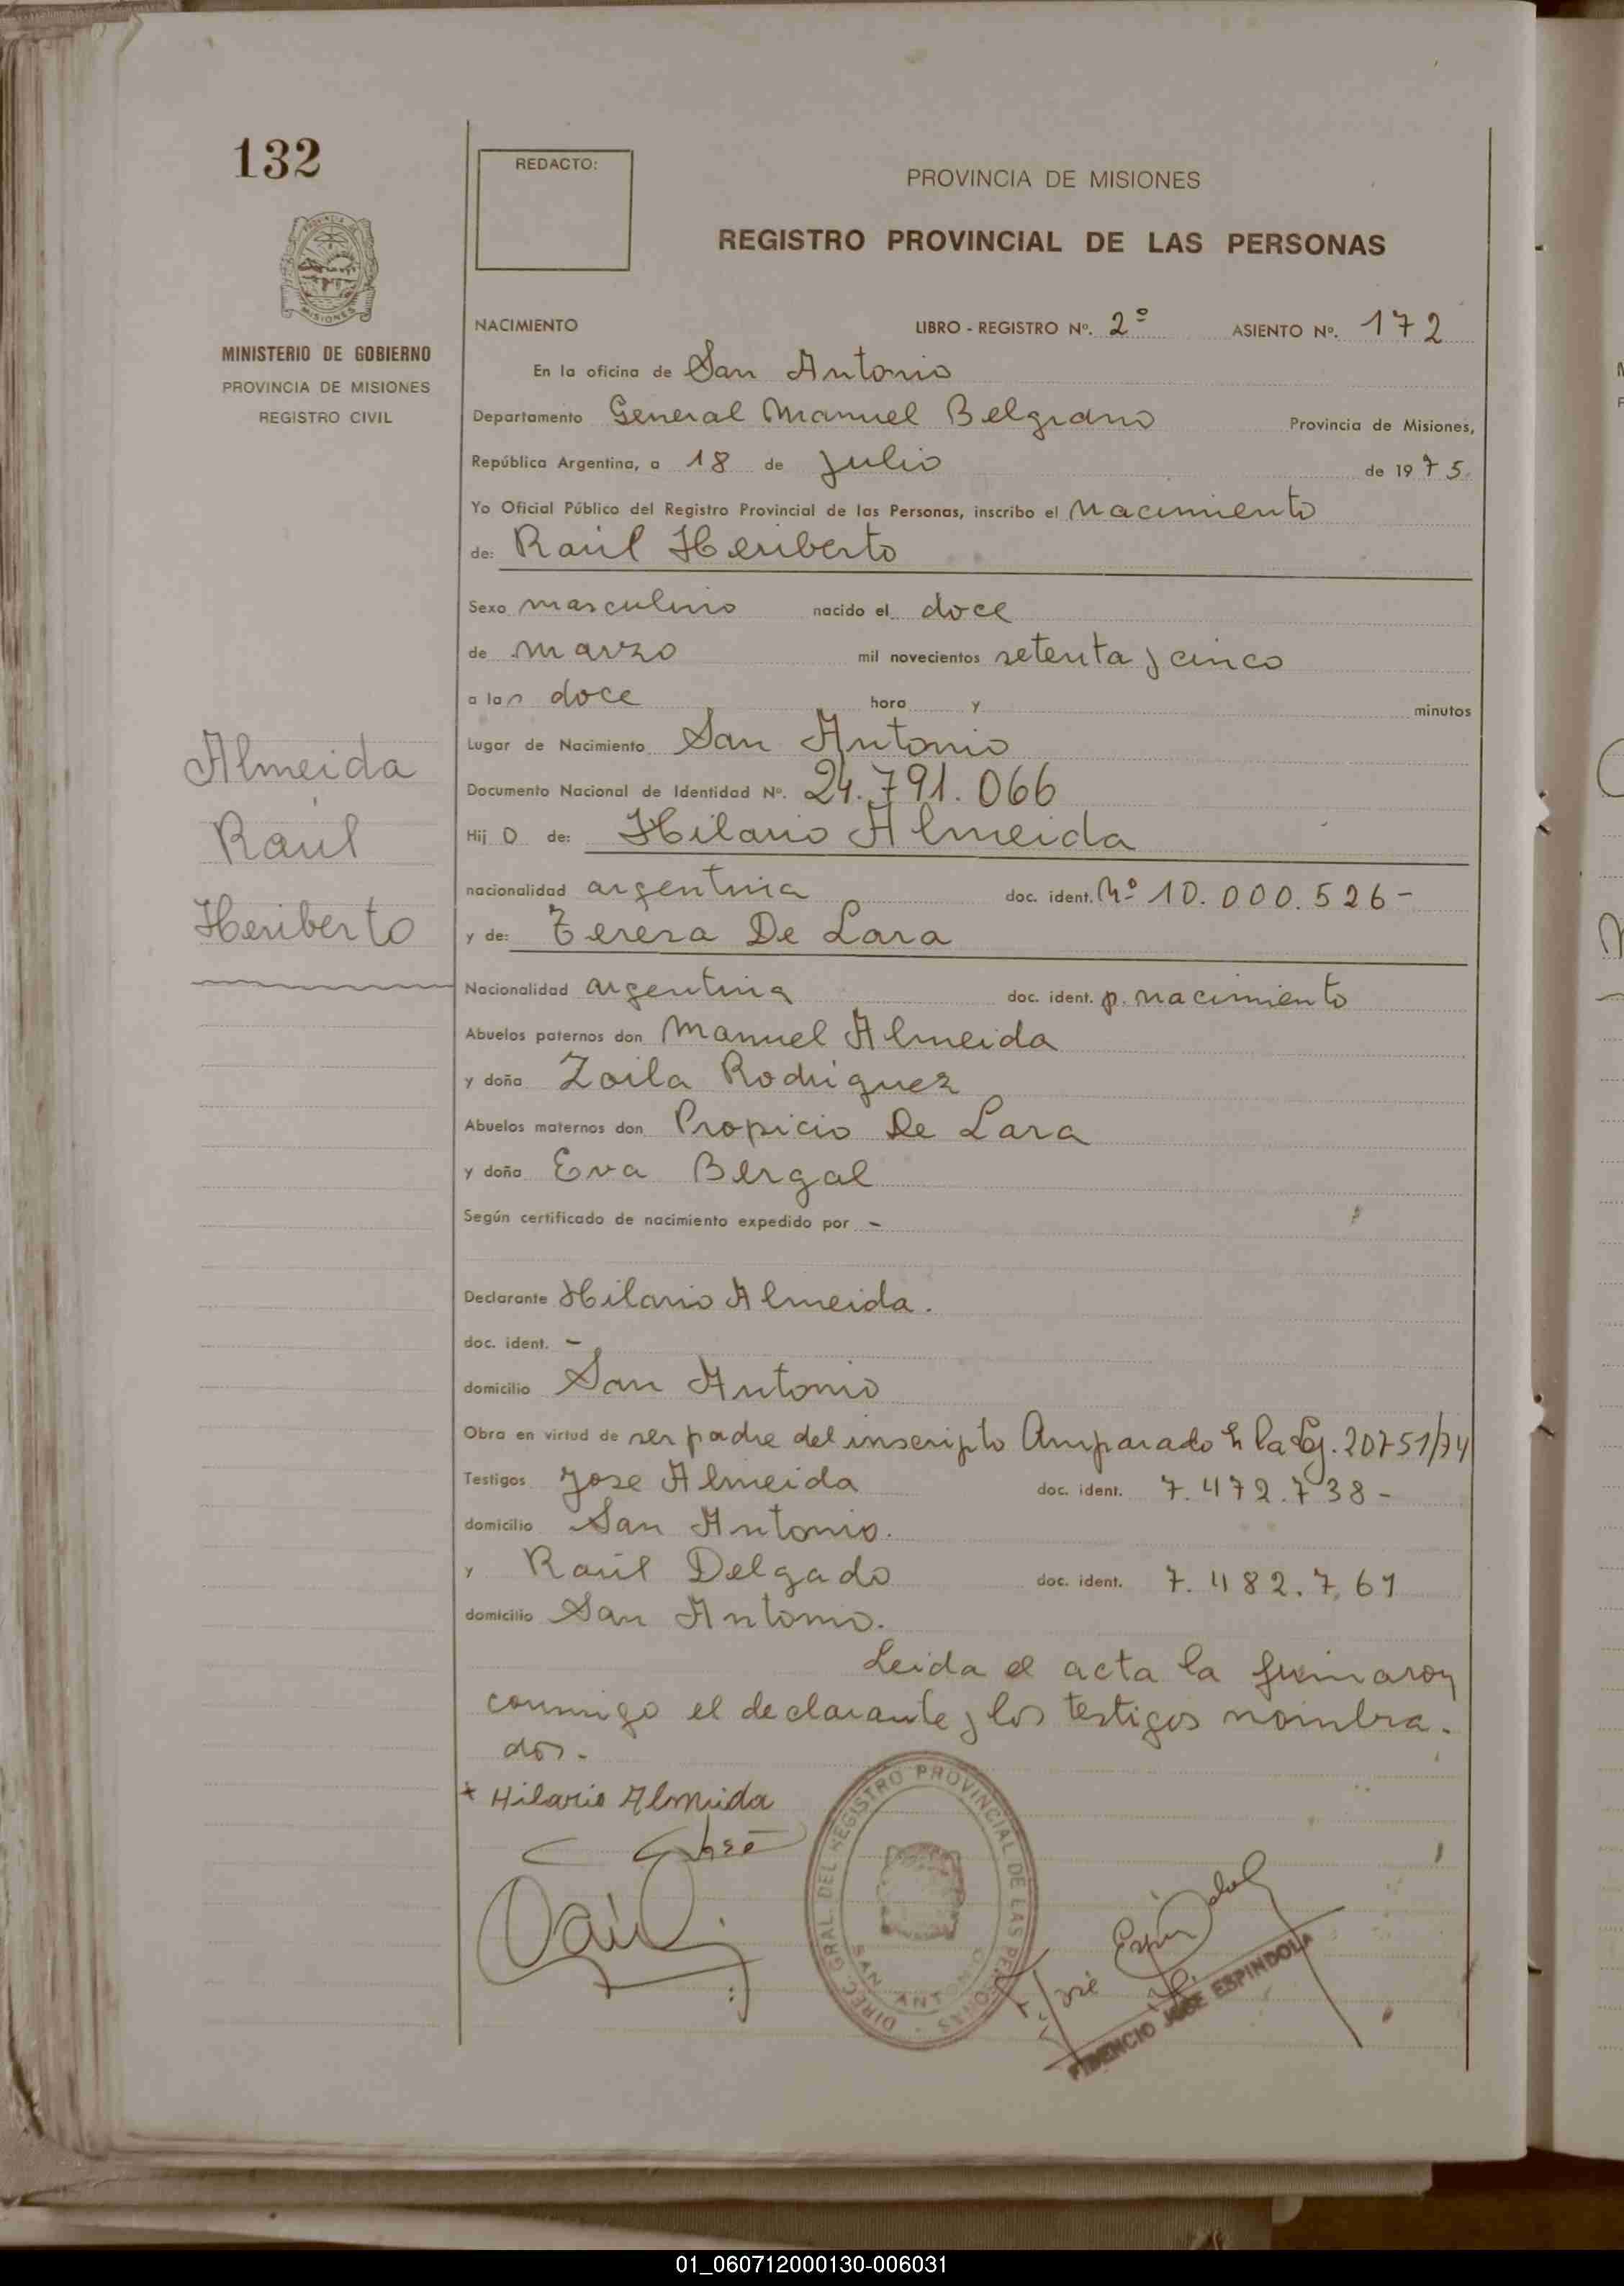 132
REDACTO:
PROVINCIA DE MISIONES
REGISTRO PROVINCIAL DE LAS PERSONAS
MISIONES
MINISTERIO DE GOBIERNO
PROVINCIA DE MISIONES
REGISTRO CIVIL
NACIMIENTO LIBRO - REGISTRO Nº. 2º ASIENTO Nº. 172
En la oficina de San Antonio
Departamento General Manuel Belgrano Provincia de Misiones,
República Argentina, a 18 de Julio de 1975.
Yo Oficial Público del Registro Provincial de las Personas, inscribo el Nacimiento
de: Raúl Heriberto
Sexo masculino nacido el doce
de marzo mil novecientos setenta y cinco
a las doce hora y minutos
Lugar de Nacimiento San Antonio
Documento Nacional de Identidad Nº. 24.791.066
Hij o de: Hilario Almeida
nacionalidad argentina doc. ident. Nº 10.000.526-
y de: Teresa De Lara
Nacionalidad argentina doc. ident. p. nacimiento
Abuelos paternos don Manuel Almeida
y doña Zoila Rodriguez
Abuelos maternos don Propicio De Lara
y doña Eva Bergal
Según certificado de nacimiento expedido por -
Almeida
Raúl
Heriberto
Declarante Hilario Almeida.
doc. ident. -
domicilio San Antonio
Obra en virtud de ser padre del inscripto Amparado la Ley. 20751/74
Testigos Jose Almeida doc. ident. 7.472.738-
domicilio San Antonio.
y Raúl Delgado doc. ident. 7.482.761
domicilio San Antonio.
Leida el acta la firmaron
conmigo el declarante y los testigos nombra-
dos.-
Hilario Almeida
DIREC. GRAL. DEL REGISTRO PROVINCIAL DE LAS PERSONAS
SAN ANTONIO
José Espindola
FIDENCIO JOSE ESPINDOLA
01_060712000130-006031